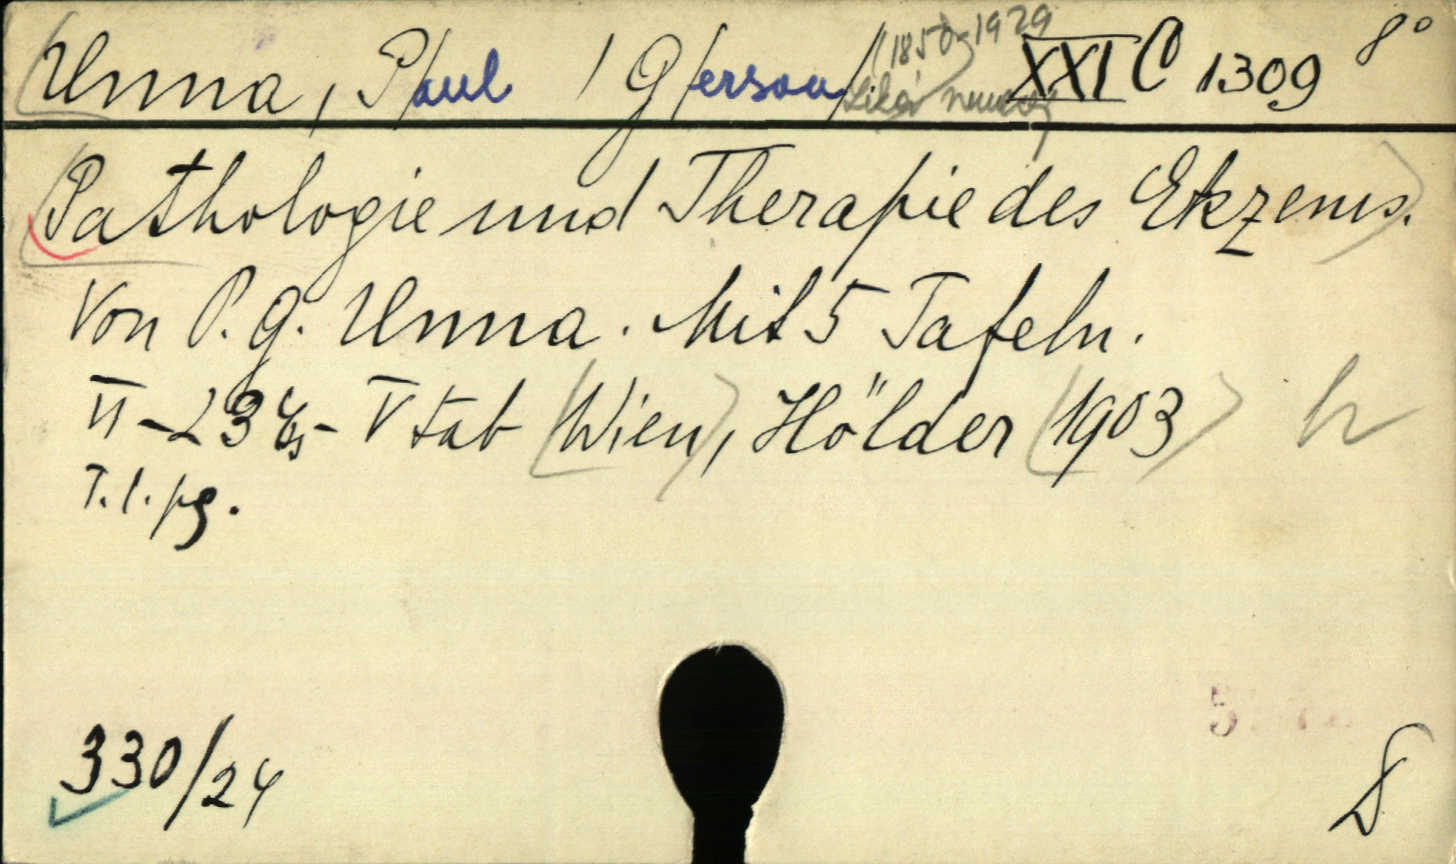 Unna, P/aul / G/erson/ (1850-1929 XXI C 1309 8°
Pathologie und Therapie des Ekzems.
Von P. G. Unna. Mit 5 Tafeln.
VI - V tab Wien, Hölder 1903
T. l. pg.
330/24